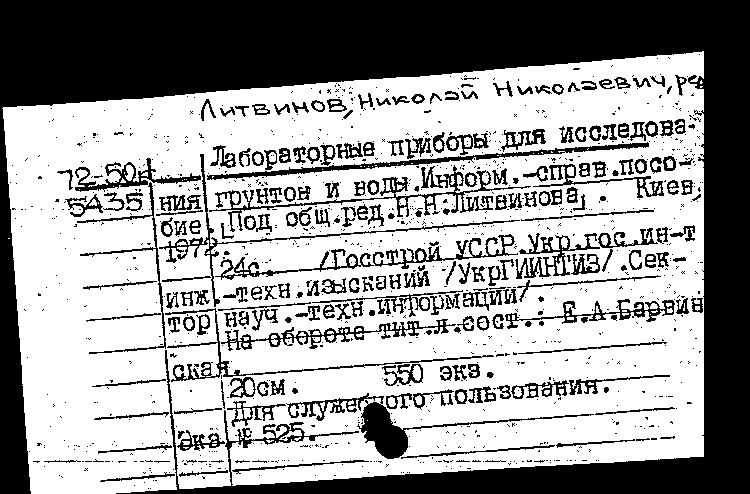 Литвинов, Николай Николаевич, ред
Лабораторные приборы для исследова-
72-50к
5435 ния грунтов и воды.Информ.-справ.посо-
бие. Под общ.ред.Н.Н.Литвинова. Киев,
1972.
24с. /Госстрой УССР.Укр.гос.ин-т
инж.-техн.изысканий /УкрГИИНТИЗ/.Сек-
тор науч.-техн.информации/.
На обороте тит.л.сост.: Е.А.Барвин
ская.
20см. 550 экз.
Для служебного пользования.
Экз.№ 525.